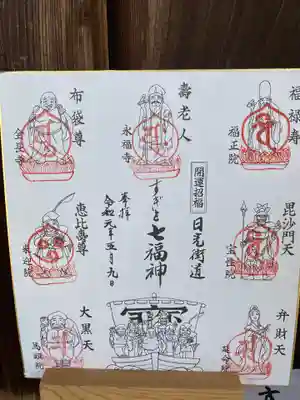 福禄寿
福正院
壽老人
永福寺
布袋尊
全長寺
毘沙門天
宝性院
開運招福
日光街道
すぎと七福神
奉拝
令和元年五月九日
恵比寿尊
弁財天
大黒天
馬頭院